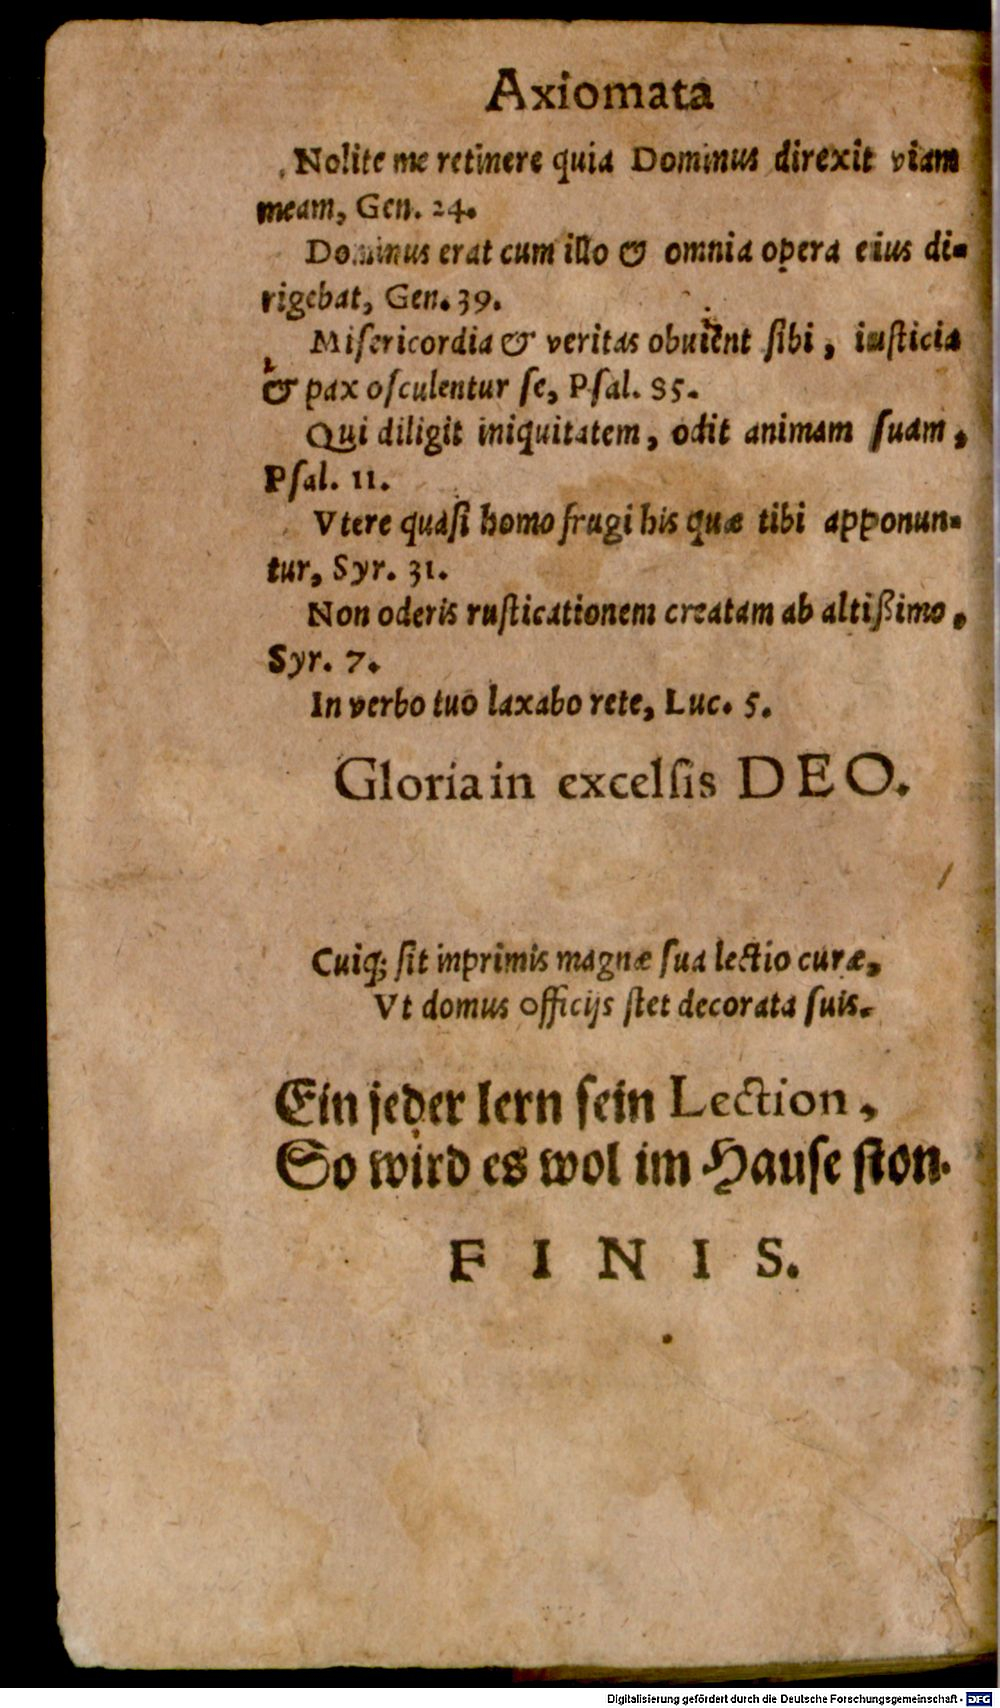 Axiomata
Nolite me retinere quia Dominus direxit viam
meam, Gen. 24.
Dominus erat cum illo & omnia opera eius di-
rigebat, Gen. 39.
Miſericordia & veritas obuiēnt ſibi, iuſticia
& pax oſculentur ſe, Pſal. 85.
Qui diligit iniquitatem, odit animam ſuam,
Pſal. 11.
Vtere quaſi homo frugi his quæ tibi apponun-
tur, Syr. 31.
Non oderis ruſticationem creatam ab altißimo,
Syr. 7.
In verbo tuo laxabo rete, Luc. 5.
Gloria in excelſis DEO.
Cuiq; ſit inprimis magnæ ſua lectio curæ,
Vt domus officijs ſtet decorata ſuis.
Ein jeder lern ſein Lection,
So wird es wol im Hauſe ſton.
FINIS.
Digitalisierung gefördert durch die Deutsche Forschungsgemeinschaft - DFG